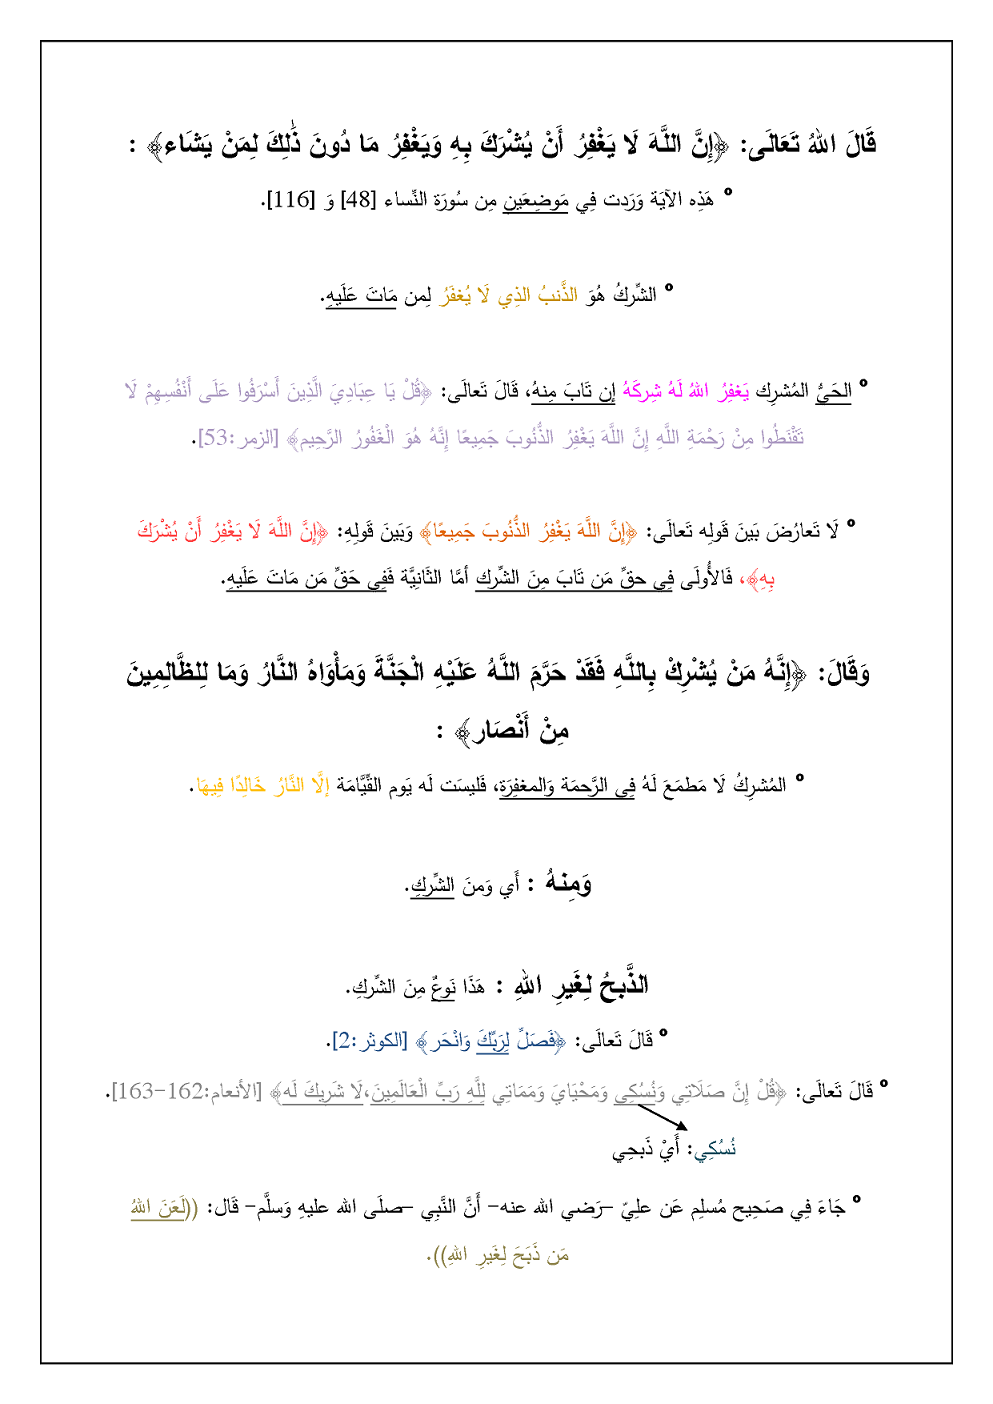 قَالَ اللهُ تَعَالَى: ﴿إِنَّ اللَّهَ لَا يَغْفِرُ أَنْ يُشْرَكَ بِهِ وَيَغْفِرُ مَا دُونَ ذَٰلِكَ لِمَنْ يَشَاء﴾ :
° هَذِه الآيَة وَرَدت فِي مَوضِعَينِ مِن سُورَة النِّساء [48] وَ [116].
° الشِّركُ هُوَ الذَّنبُ الذِي لَا يُغفَرُ لِمن مَاتَ عَلَيهِ.
° الحَيُّ المُشرِك يَغفِرُ اللهُ لَهُ شِركَهُ إِن تَابَ مِنهُ، قَالَ تَعالَى: ﴿قُلْ يَا عِبَادِيَ الَّذِينَ أَسْرَفُوا عَلَى أَنْفُسِهِمْ لَا
تَقْنَطُوا مِنْ رَحْمَةِ اللَّهِ إِنَّ اللَّهَ يَغْفِرُ الذُّنُوبَ جَمِيعًا إِنَّهُ هُوَ الْغَفُورُ الرَّحِيم﴾ [الزمر:53].
° لَا تَعارُضَ بَينَ قَولِه تَعالَى: ﴿إِنَّ اللَّهَ يَغْفِرُ الذُّنُوبَ جَمِيعًا﴾ وَبَينَ قَولِهِ: ﴿إِنَّ اللَّهَ لَا يَغْفِرُ أَنْ يُشْرَكَ
بِهِ﴾، فَالأُولَى فِي حقِّ مَن تَابَ مِنَ الشِّركِ أمَّا الثَانِيَّة فَفِي حَقِّ مَن مَاتَ عَلَيهِ.
وَقَالَ: ﴿إِنَّهُ مَنْ يُشْرِكْ بِاللَّهِ فَقَدْ حَرَّمَ اللَّهُ عَلَيْهِ الْجَنَّةَ وَمَأْوَاهُ النَّارُ وَمَا لِلظَّالِمِينَ
مِنْ أَنْصَار﴾ :
° المُشرِكُ لَا مَطمَعَ لَهُ فِي الرَّحمَة وَالمغفِرَة، فَليسَت لَه يَوم القِيَّامَة إلَّا النَّارُ خَالِدًا فِيهَا.
وَمِنهُ : أَي وَمنَ الشِّركِ.
الذَّبحُ لِغَيرِ اللهِ : هَذَا نَوعٌ مِنَ الشِّركِ.
° قَالَ تَعالَى: ﴿فَصَلِّ لِرَبِّكَ وَانْحَر﴾ [الكوثر:2].
° قَالَ تَعالَى: ﴿قُلْ إِنَّ صَلَاتِي وَنُسُكِي وَمَحْيَايَ وَمَمَاتِي لِلَّهِ رَبِّ الْعَالَمِينَ،لَا شَرِيكَ لَه﴾ [الأنعام:162-163].
نُسُكِي: أَيْ ذَبحِي
° جَاءَ فِي صَحِيح مُسلِم عَن علِيّ –رَضي الله عنه- أَنَّ النَّبِي –صلَى الله عليهِ وَسلَّم- قَال: ((لَعَنَ اللهُ
مَن ذَبَحَ لِغَيرِ اللهِ)).